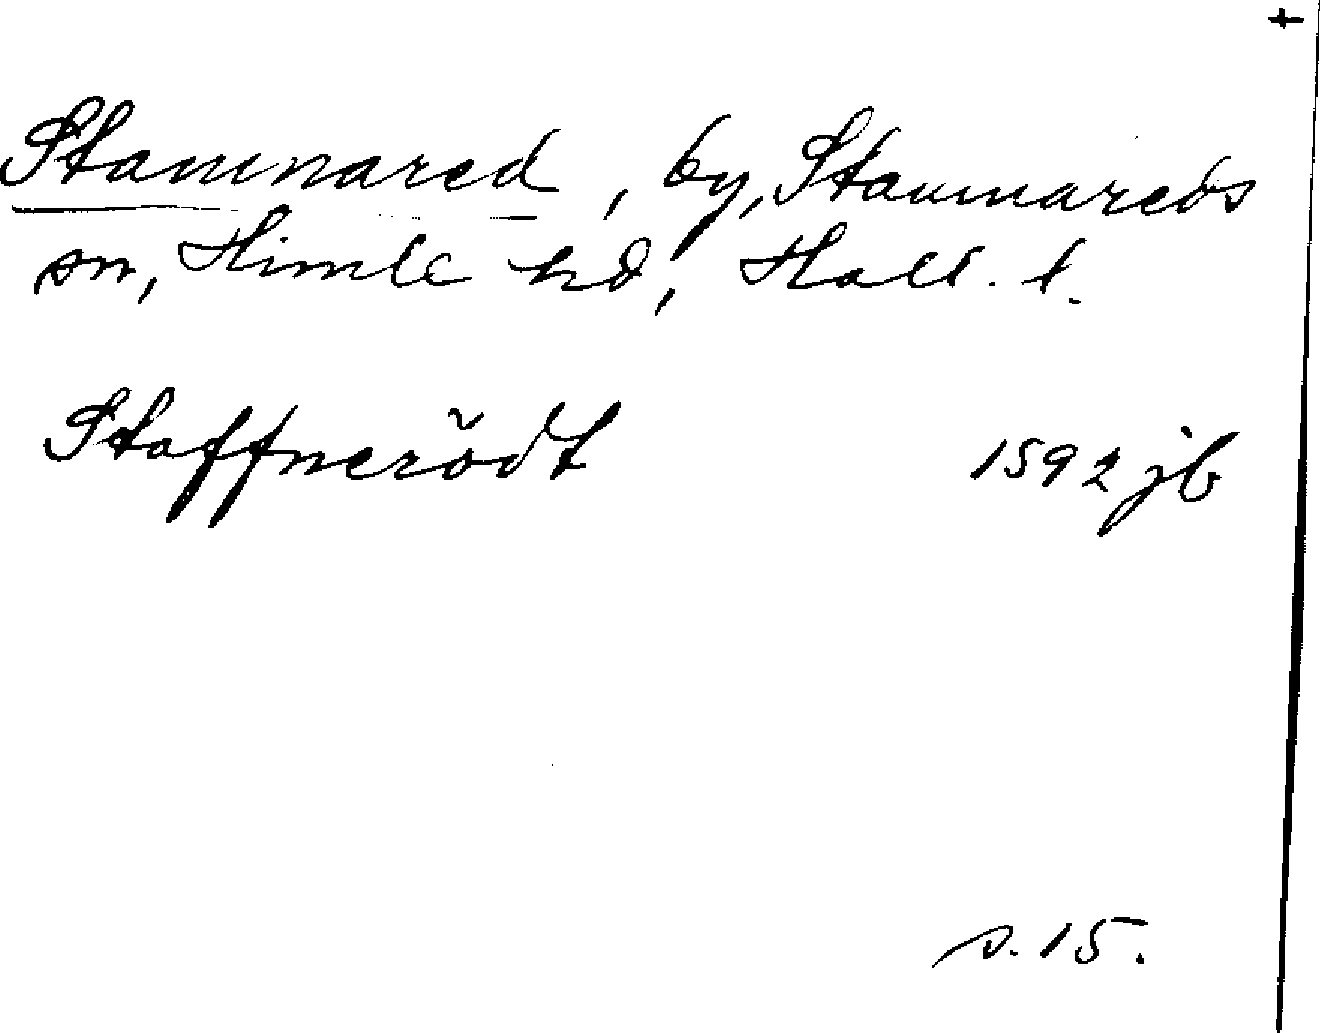 +
Stamnared, by, Stamnareds
sn, Himle hd, Hall. l.
Staffnerödt 1592 jb
s. 15.